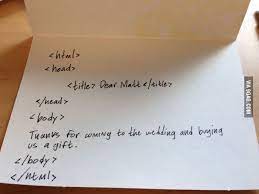 <html>
<head>
<title> Dear Matt </title>
</head>
<body>
Thanks for coming to the wedding and buying
us a gift.
</body>
</html>
VIA 9GAG.COM